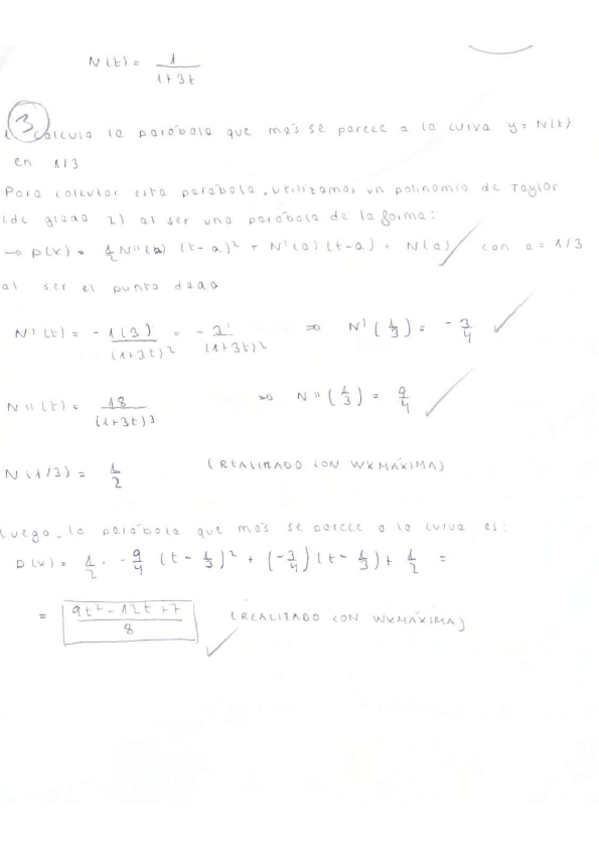 N(t) = 1 / 1+3t
3
Calcula la parábola que más se parece a la curva y = N(t)
en 1/3
Para calcular esta parábola, utilizamos un polinomio de Taylor
(de grado 2) al ser una parábola de la forma:
→ P(x) = 1/2 N''(a) (t-a)² + N'(a) (t-a) + N(a) con a = 1/3
al ser el punto dado
N'(t) = - 1(3) / (1+3t)² = - 3 / (1+3t)² ⇒ N'(1/3) = - 3/4
N''(t) = 18 / (1+3t)³ ⇒ N''(1/3) = 9/4
N(1/3) = 1/2 (REALIZADO CON WXMÁXIMA)
Luego, la parábola que más se parece a la curva es:
P(x) = 1/2 · 9/4 (t - 1/3)² + (-3/4)(t - 1/3) + 1/2 =
= 9t² - 12t + 7 / 8 (REALIZADO CON WXMÁXIMA)